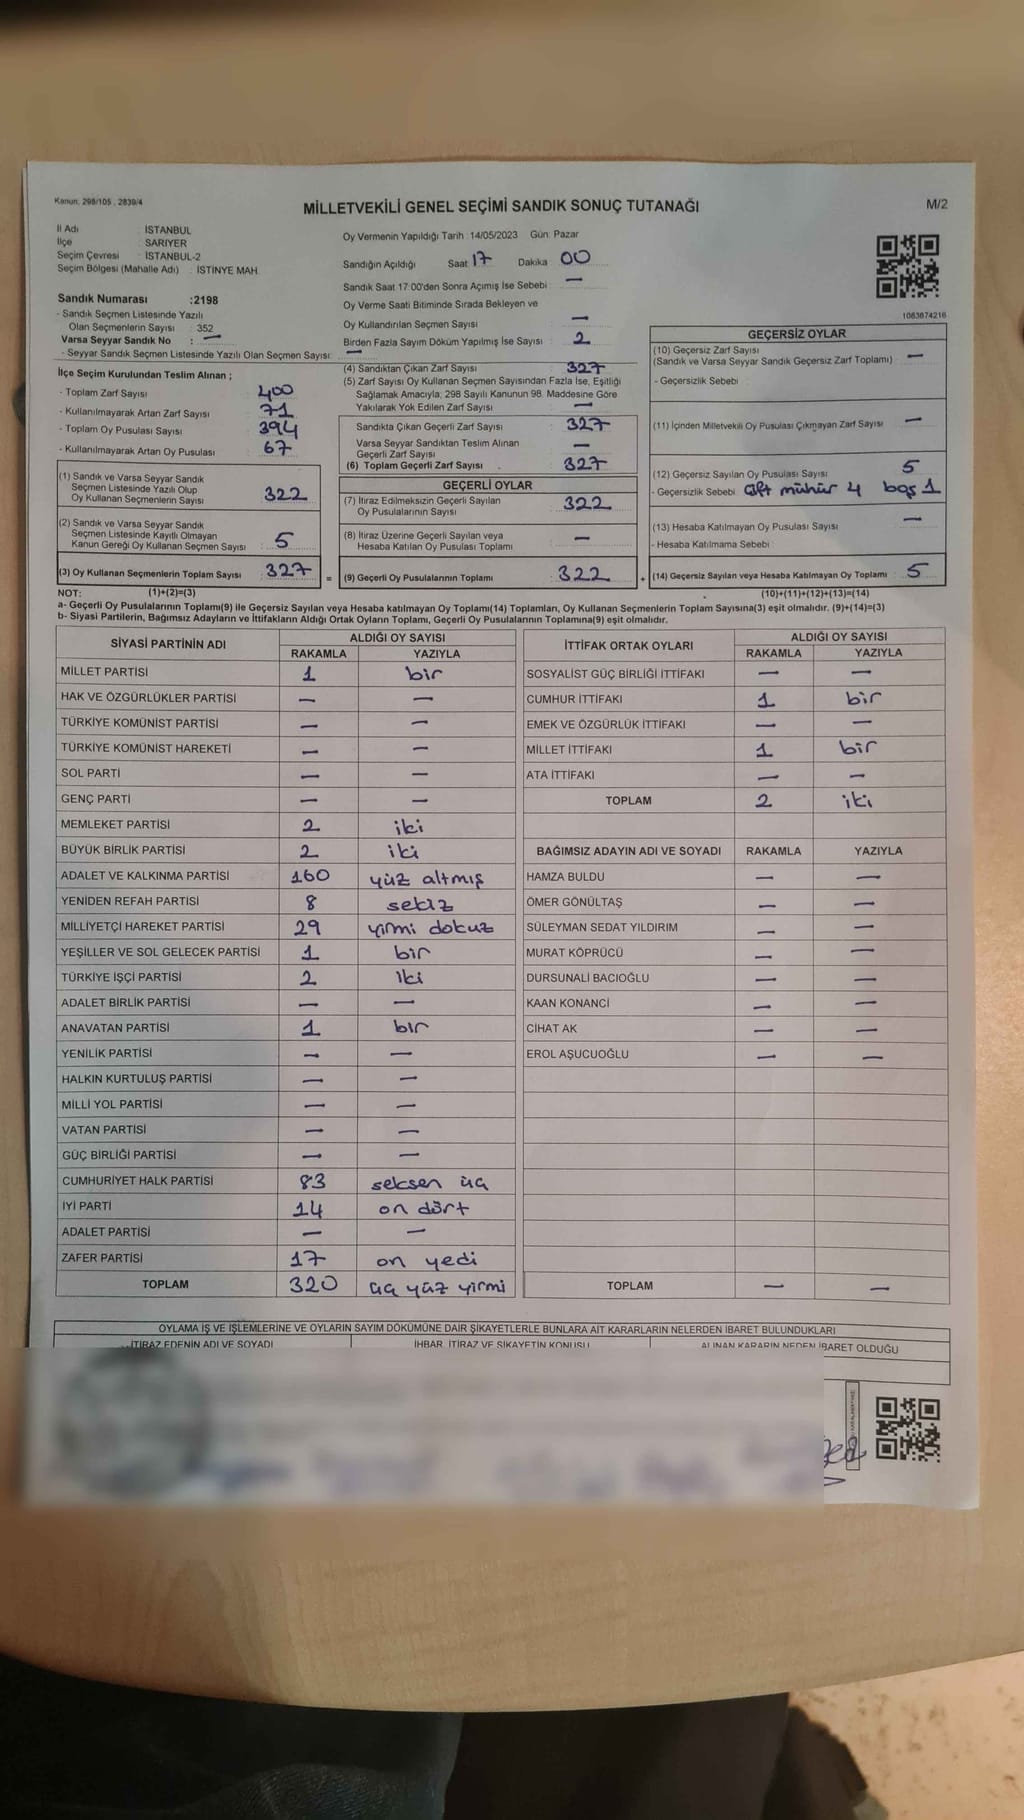 Kanun. 298/105 , 2839/4
MİLLETVEKİLİ GENEL SEÇİMİ SANDIK SONUÇ TUTANAĞI
M/2
İl Adı : İSTANBUL
İlçe : SARIYER
Seçim Çevresi : İSTANBUL-2
Seçim Bölgesi (Mahalle Adı) : İSTİNYE MAH.
Sandık Numarası :2198
- Sandık Seçmen Listesinde Yazılı
Olan Seçmenlerin Sayısı : 352
Varsa Seyyar Sandık No : —
- Seyyar Sandık Seçmen Listesinde Yazılı Olan Seçmen Sayısı: —
Oy Vermenin Yapıldığı Tarih : 14/05/2023 Gün: Pazar
Sandığın Açıldığı Saat 17 Dakika 00
Sandık Saat 17:00'den Sonra Açımış İse Sebebi : —
Oy Verme Saati Bitiminde Sırada Bekleyen ve
Oy Kullandırılan Seçmen Sayısı —
Birden Fazla Sayım Döküm Yapılmış İse Sayısı : 2
1083674216
İlçe Seçim Kurulundan Teslim Alınan ;
- Toplam Zarf Sayısı 400
- Kullanılmayarak Artan Zarf Sayısı 71
- Toplam Oy Pusulası Sayısı 394
- Kullanılmayarak Artan Oy Pusulası 67
(1) Sandık ve Varsa Seyyar Sandık
Seçmen Listesinde Yazılı Olup
Oy Kullanan Seçmenlerin Sayısı 322
(2) Sandık ve Varsa Seyyar Sandık
Seçmen Listesinde Kayıtlı Olmayan
Kanun Gereği Oy Kullanan Seçmen Sayısı 5
(3) Oy Kullanan Seçmenlerin Toplam Sayısı 327
(4) Sandıktan Çıkan Zarf Sayısı 327
(5) Zarf Sayısı Oy Kullanan Seçmen Sayısından Fazla İse, Eşitliği
Sağlamak Amacıyla; 298 Sayılı Kanunun 98. Maddesine Göre
Yakılarak Yok Edilen Zarf Sayısı —
Sandıkta Çıkan Geçerli Zarf Sayısı 327
Varsa Seyyar Sandıktan Teslim Alınan
Geçerli Zarf Sayısı —
(6) Toplam Geçerli Zarf Sayısı . 327
GEÇERLİ OYLAR
(7) İtiraz Edilmeksizin Geçerli Sayılan
Oy Pusulalarının Sayısı 322
(8) İtiraz Üzerine Geçerli Sayılan veya
Hesaba Katılan Oy Pusulası Toplamı —
= (9) Geçerli Oy Pusulalarının Toplamı 322 +
GEÇERSİZ OYLAR
(10) Geçersiz Zarf Sayısı
(Sandık ve Varsa Seyyar Sandık Geçersiz Zarf Toplamı) —
- Geçersizlik Sebebi :
(11) İçinden Milletvekili Oy Pusulası Çıkmayan Zarf Sayısı —
(12) Geçersiz Sayılan Oy Pusulası Sayısı 5
- Geçersizlik Sebebi: çift mühür 4 boş 1
(13) Hesaba Katılmayan Oy Pusulası Sayısı —
- Hesaba Katılmama Sebebi :
(14) Geçersiz Sayılan veya Hesaba Katılmayan Oy Toplamı 5
NOT: (1)+(2)=(3) (10)+(11)+(12)+(13)=(14)
a- Geçerli Oy Pusulalarının Toplamı(9) ile Geçersiz Sayılan veya Hesaba katılmayan Oy Toplamı(14) Toplamları, Oy Kullanan Seçmenlerin Toplam Sayısına(3) eşit olmalıdır. (9)+(14)=(3)
b- Siyasi Partilerin, Bağımsız Adayların ve İttifakların Aldığı Ortak Oyların Toplamı, Geçerli Oy Pusulalarının Toplamına(9) eşit olmalıdır.
SİYASİ PARTİNİN ADI ALDIĞI OY SAYISI
RAKAMLA YAZIYLA
MİLLET PARTİSİ 1 bir
HAK VE ÖZGÜRLÜKLER PARTİSİ — —
TÜRKİYE KOMÜNİST PARTİSİ — —
TÜRKİYE KOMÜNİST HAREKETİ — —
SOL PARTİ — —
GENÇ PARTİ — —
MEMLEKET PARTİSİ 2 iki
BÜYÜK BİRLİK PARTİSİ 2 iki
ADALET VE KALKINMA PARTİSİ 160 yüz altmış
YENİDEN REFAH PARTİSİ 8 sekiz
MİLLİYETÇİ HAREKET PARTİSİ 29 yirmi dokuz
YEŞİLLER VE SOL GELECEK PARTİSİ 1 bir
TÜRKİYE İŞÇİ PARTİSİ 2 iki
ADALET BİRLİK PARTİSİ — —
ANAVATAN PARTİSİ 1 bir
YENİLİK PARTİSİ — —
HALKIN KURTULUŞ PARTİSİ — —
MİLLİ YOL PARTİSİ — —
VATAN PARTİSİ — —
GÜÇ BİRLİĞİ PARTİSİ — —
CUMHURİYET HALK PARTİSİ 83 seksen üç
İYİ PARTİ 14 on dört
ADALET PARTİSİ — —
ZAFER PARTİSİ 17 on yedi
TOPLAM 320 üç yüz yirmi
İTTİFAK ORTAK OYLARI ALDIĞI OY SAYISI
RAKAMLA YAZIYLA
SOSYALİST GÜÇ BİRLİĞİ İTTİFAKI — —
CUMHUR İTTİFAKI 1 bir
EMEK VE ÖZGÜRLÜK İTTİFAKI — —
MİLLET İTTİFAKI 1 bir
ATA İTTİFAKI — —
TOPLAM 2 iki
BAĞIMSIZ ADAYIN ADI VE SOYADI RAKAMLA YAZIYLA
HAMZA BULDU — —
ÖMER GÖNÜLTAŞ — —
SÜLEYMAN SEDAT YILDIRIM — —
MURAT KÖPRÜCÜ — —
DURSUNALİ BACIOĞLU — —
KAAN KONANCİ — —
CİHAT AK — —
EROL AŞUCUOĞLU — —
TOPLAM — —
OYLAMA İŞ VE İŞLEMLERİNE VE OYLARIN SAYIM DÖKÜMÜNE DAİR ŞİKAYETLERLE BUNLARA AİT KARARLARIN NELERDEN İBARET BULUNDUKLARI
İTİRAZ EDENİN ADI VE SOYADI İHBAR, İTİRAZ VE ŞİKAYETİN KONUSU ALINAN KARARIN NEDEN İBARET OLDUĞU